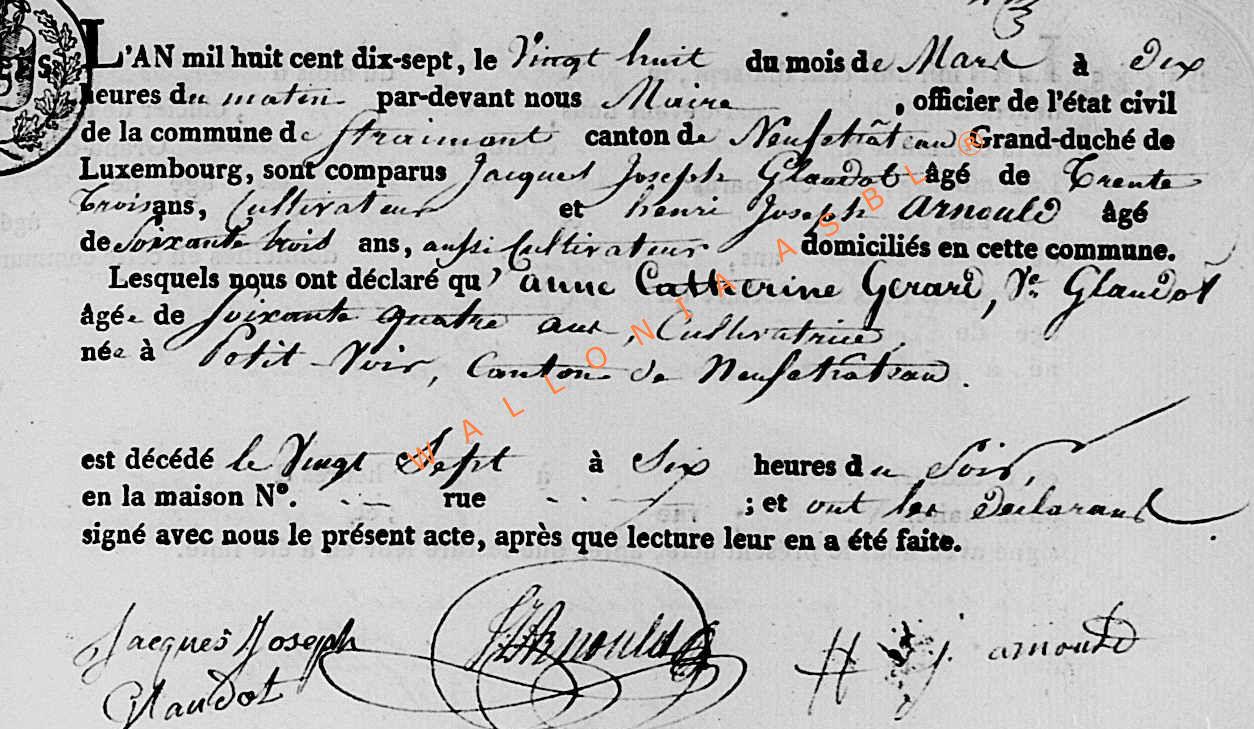 L'AN mil huit cent dix-sept, le Vingt huit du mois de Mars à dix
heures du matin par-devant nous Maire, officier de l'état civil
de la commune de Straimont canton de Neufchâteau Grand-duché de
Luxembourg, sont comparus Jacques Joseph Glaudot âgé de Trente
Trois ans, Cultivateur et henri Joseph arnould âgé
de Soixante trois ans, aussi Cultivateur domiciliés en cette commune.
Lesquels nous ont déclaré qu'anne Catherine Gerard, Ve. Glaudot
âgée de Soixante quatre ans, Cultivatrice,
née à Petit-Voir, Canton de Neufchateau.
est décédé le Vingt Sept à Six heures du Soir,
en la maison N°. rue ; et ont les déclarans
signé avec nous le présent acte, après que lecture leur en a été faite.
Jacques Joseph
Glaudot
Arnould
H J. arnould
WALLONIA ASBL ®